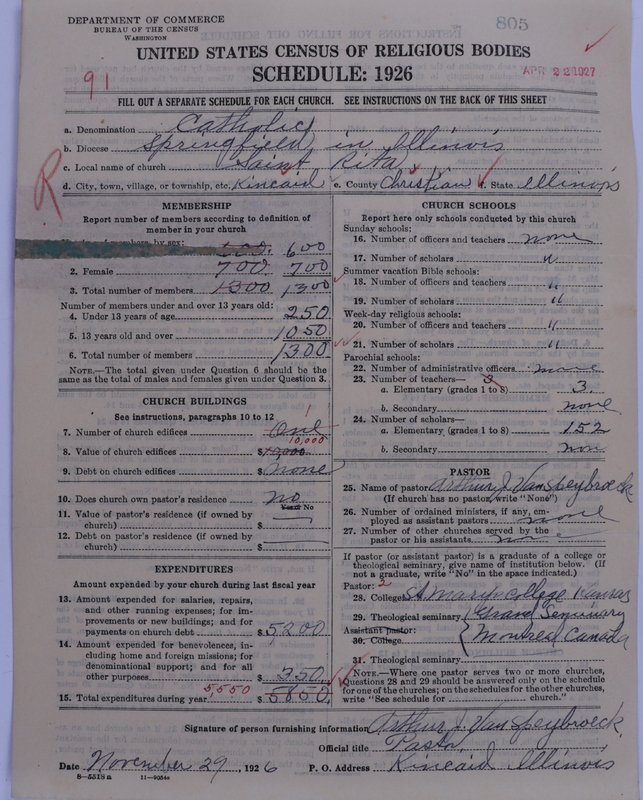 DEPARTMENT OF COMMERCE
BUREAU OF THE CENSUS
WASHINGTON
805
UNITED STATES CENSUS OF RELIGIOUS BODIES
SCHEDULE: 1926
APR 22 1927
91
FILL OUT A SEPARATE SCHEDULE FOR EACH CHURCH. SEE INSTRUCTIONS ON THE BACK OF THIS SHEET
a. Denomination Catholic
b. Diocese Springfield in Illinois
c. Local name of church Saint Rita
d. City, town, village, or township, etc. Kincaid e. County Christian f. State Illinois
R
MEMBERSHIP
Report number of members according to definition of
member in your church
by sex: 600 600
2. Female 700 700
3. Total number of members 1300 1300
Number of members under and over 13 years old:
4. Under 13 years of age 250
5. 13 years old and over 1050
6. Total number of members 1300
NOTE.—The total given under Question 6 should be
same as the total of males and females given under Question 3.
CHURCH BUILDINGS
See instructions, paragraphs 10 to 12
7. Number of church edifices One 1
10,000
8. Value of church edifices $10,000
9. Debt on church edifices $None
10. Does church own pastor's residence no
Yes or No
11. Value of pastor's residence (if owned by
church) $
12. Debt on pastor's residence (if owned by
church) $
EXPENDITURES
Amount expended by your church during last fiscal year
13. Amount expended for salaries, repairs,
and other running expenses; for im-
provements or new buildings; and for
payments on church debt $5200
14. Amount expended for benevolences, in-
cluding home and foreign missions; for
denominational support; and for all
other purposes $350
15. Total expenditures during year 5550 $5850
CHURCH SCHOOLS
Report here only schools conducted by this church
Sunday schools:
16. Number of officers and teachers none
17. Number of scholars "
Summer vacation Bible schools:
18. Number of officers and teachers "
19. Number of scholars "
Week-day religious schools:
20. Number of officers and teachers "
21. Number of scholars "
Parochial schools:
22. Number of administrative officers none
23. Number of teachers— 3
a. Elementary (grades 1 to 8) 3
b. Secondary none
24. Number of scholars—
a. Elementary (grades 1 to 8) 152
b. Secondary non
PASTOR
25. Name of pastor Arthur J. Van Speybroeck
(If church has no pastor, write "None")
26. Number of ordained ministers, if any, em-
ployed as assistant pastors none
27. Number of other churches served by the
pastor or his assistants none
If pastor (or assistant pastor) is a graduate of a college or
theological seminary, give name of institution below. (If
not a graduate, write "No" in the space indicated.)
Pastor: 2
28. College St Marys College Kansas
29. Theological seminary Grand Seminary
Assistant pastor: Montreal Canada
30. College
31. Theological seminary
NOTE.—Where one pastor serves two or more churches,
Questions 28 and 29 should be answered only on the schedule
for one of the churches; on the schedules for the other churches,
write "See schedule for church."
Signature of person furnishing information Arthur J. Van Speybroeck
Official title Pastor
Date November 29, 1926 P. O. Address Kincaid Illinois
8—5518a 11—9054a